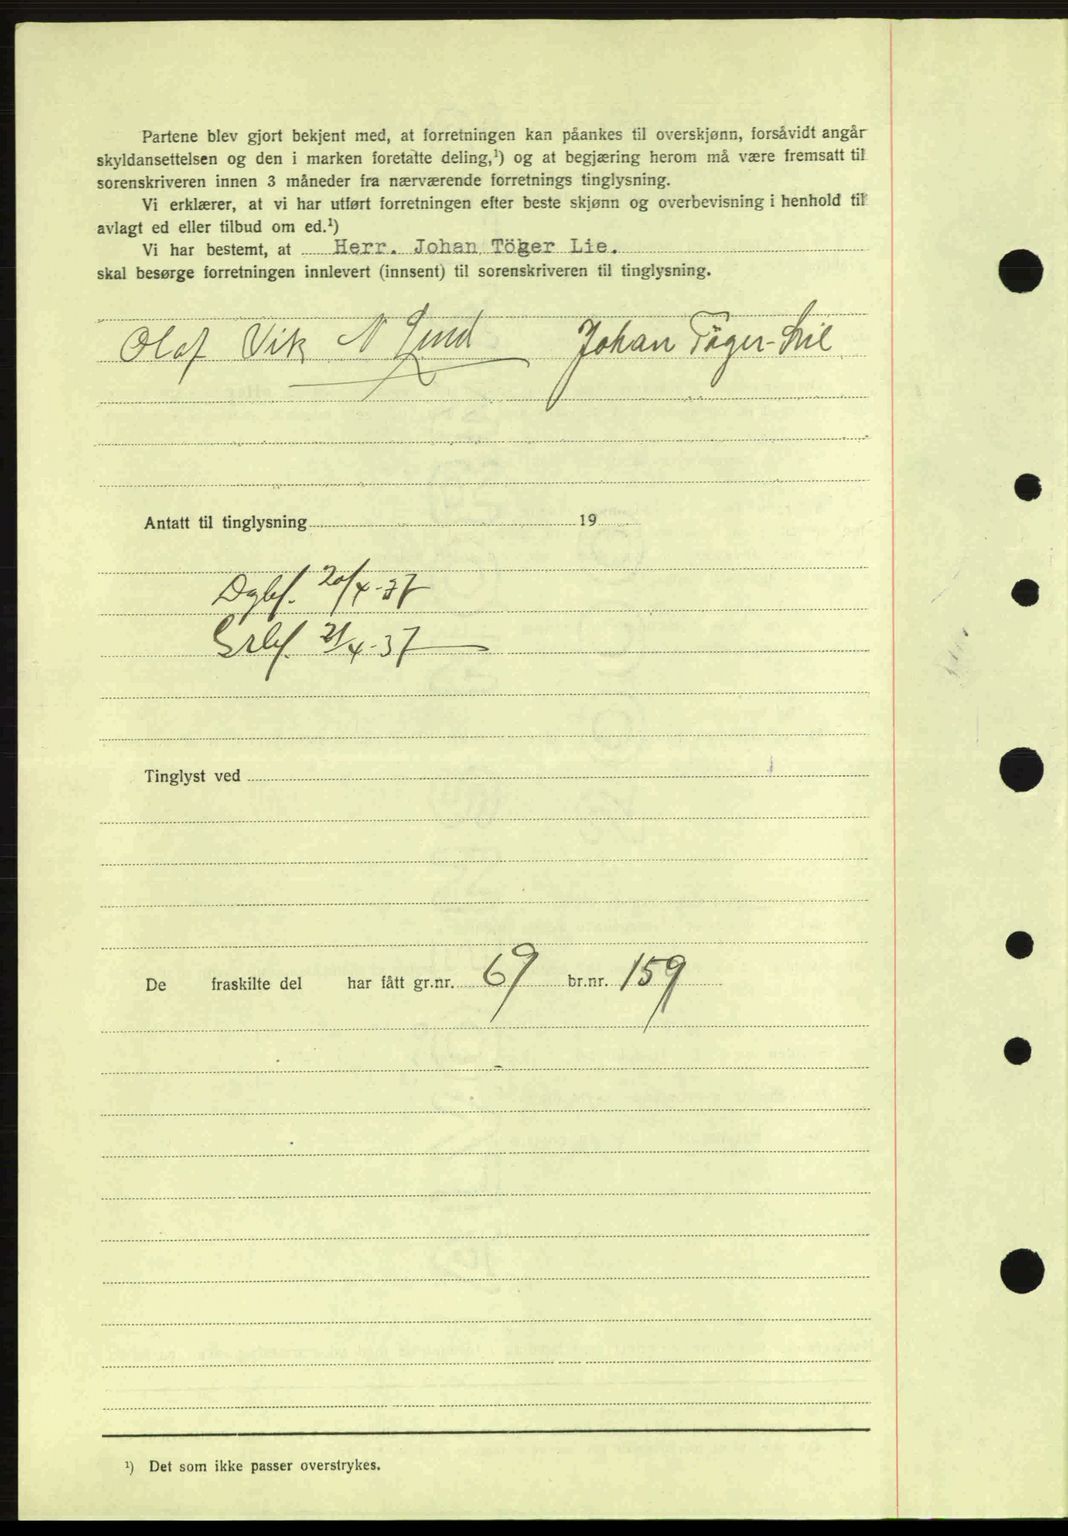 Partene blev gjort bekjent med, at forretningen kan påankes til overskjønn, forsåvidt angår
skyldansettelsen og den i marken foretatte deling,¹) og at begjæring herom må være fremsatt til
sorenskriveren innen 3 måneder fra nærværende forretnings tinglysning.
Vi erklærer, at vi har utført forretningen efter beste skjønn og overbevisning i henhold til
avlagt ed eller tilbud om ed.¹)
Vi har bestemt, at Herr. Johan Töger Lie.
skal besørge forretningen innlevert (innsent) til sorenskriveren til tinglysning.
Olaf Vik N Lund Johan Tøger-Lie
Antatt til tinglysning 19
Dgbf. 20/4-37
Grbf. 21/4-37
Tinglyst ved
De fraskilte del har fått gr.nr. 69 br.nr. 159
¹) Det som ikke passer overstrykes.